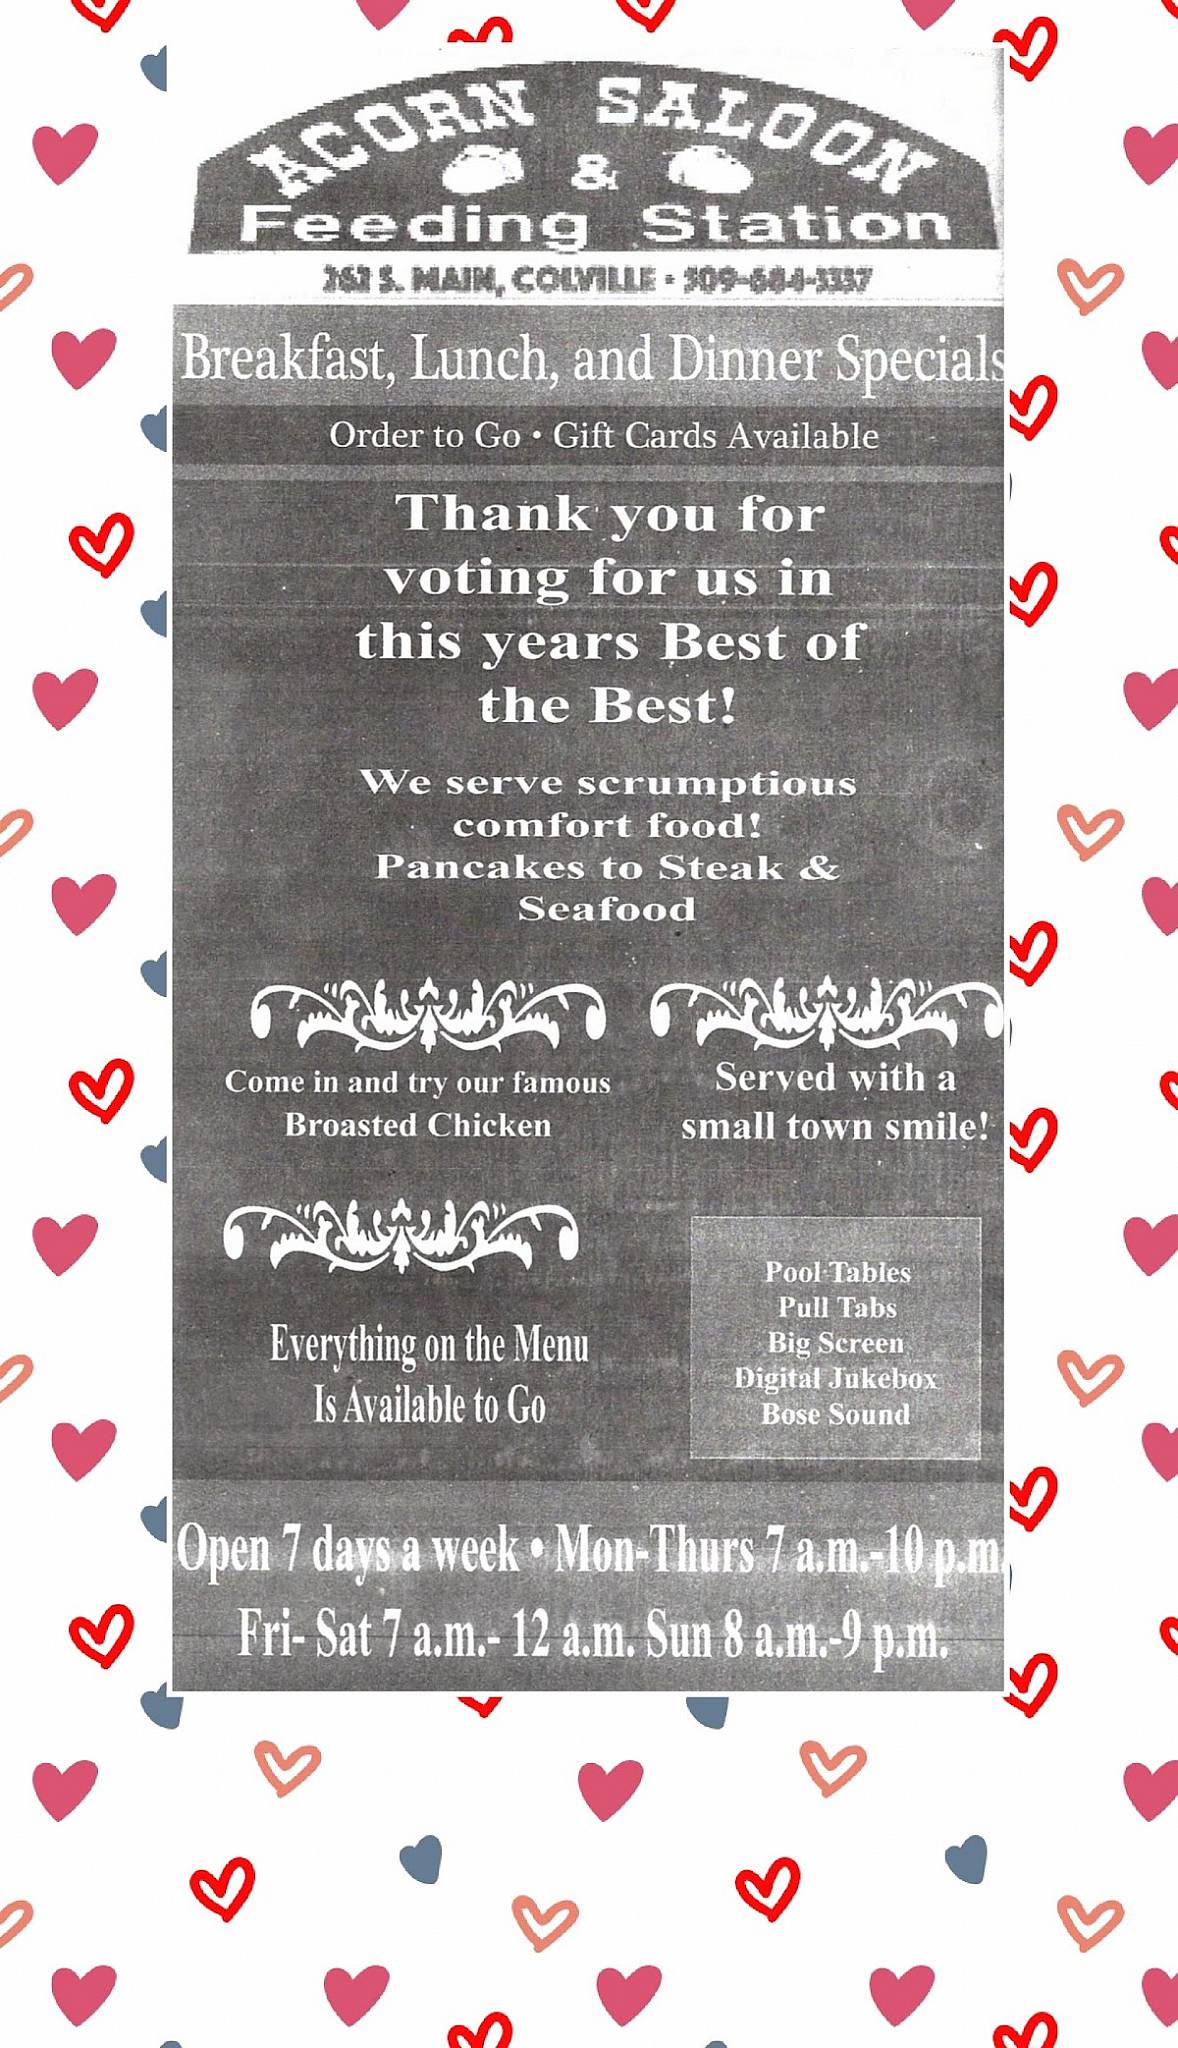 ACORN SALOON
&
Feeding Station
S. MAIN, COLVILLE •
Breakfast, Lunch, and Dinner Specials
Order to Go • Gift Cards Available
Thank you for
voting for us in
this years Best of
the Best!
We serve scrumptious
comfort food!
Pancakes to Steak &
Seafood
Come in and try our famous
Broasted Chicken
Served with a
small town smile!
Everything on the Menu
Is Available to Go
Pool Tables
Pull Tabs
Big Screen
Digital Jukebox
Bose Sound
Open 7 days a week • Mon-Thurs 7 a.m.-10 p.m.
Fri- Sat 7 a.m.- 12 a.m. Sun 8 a.m.-9 p.m.